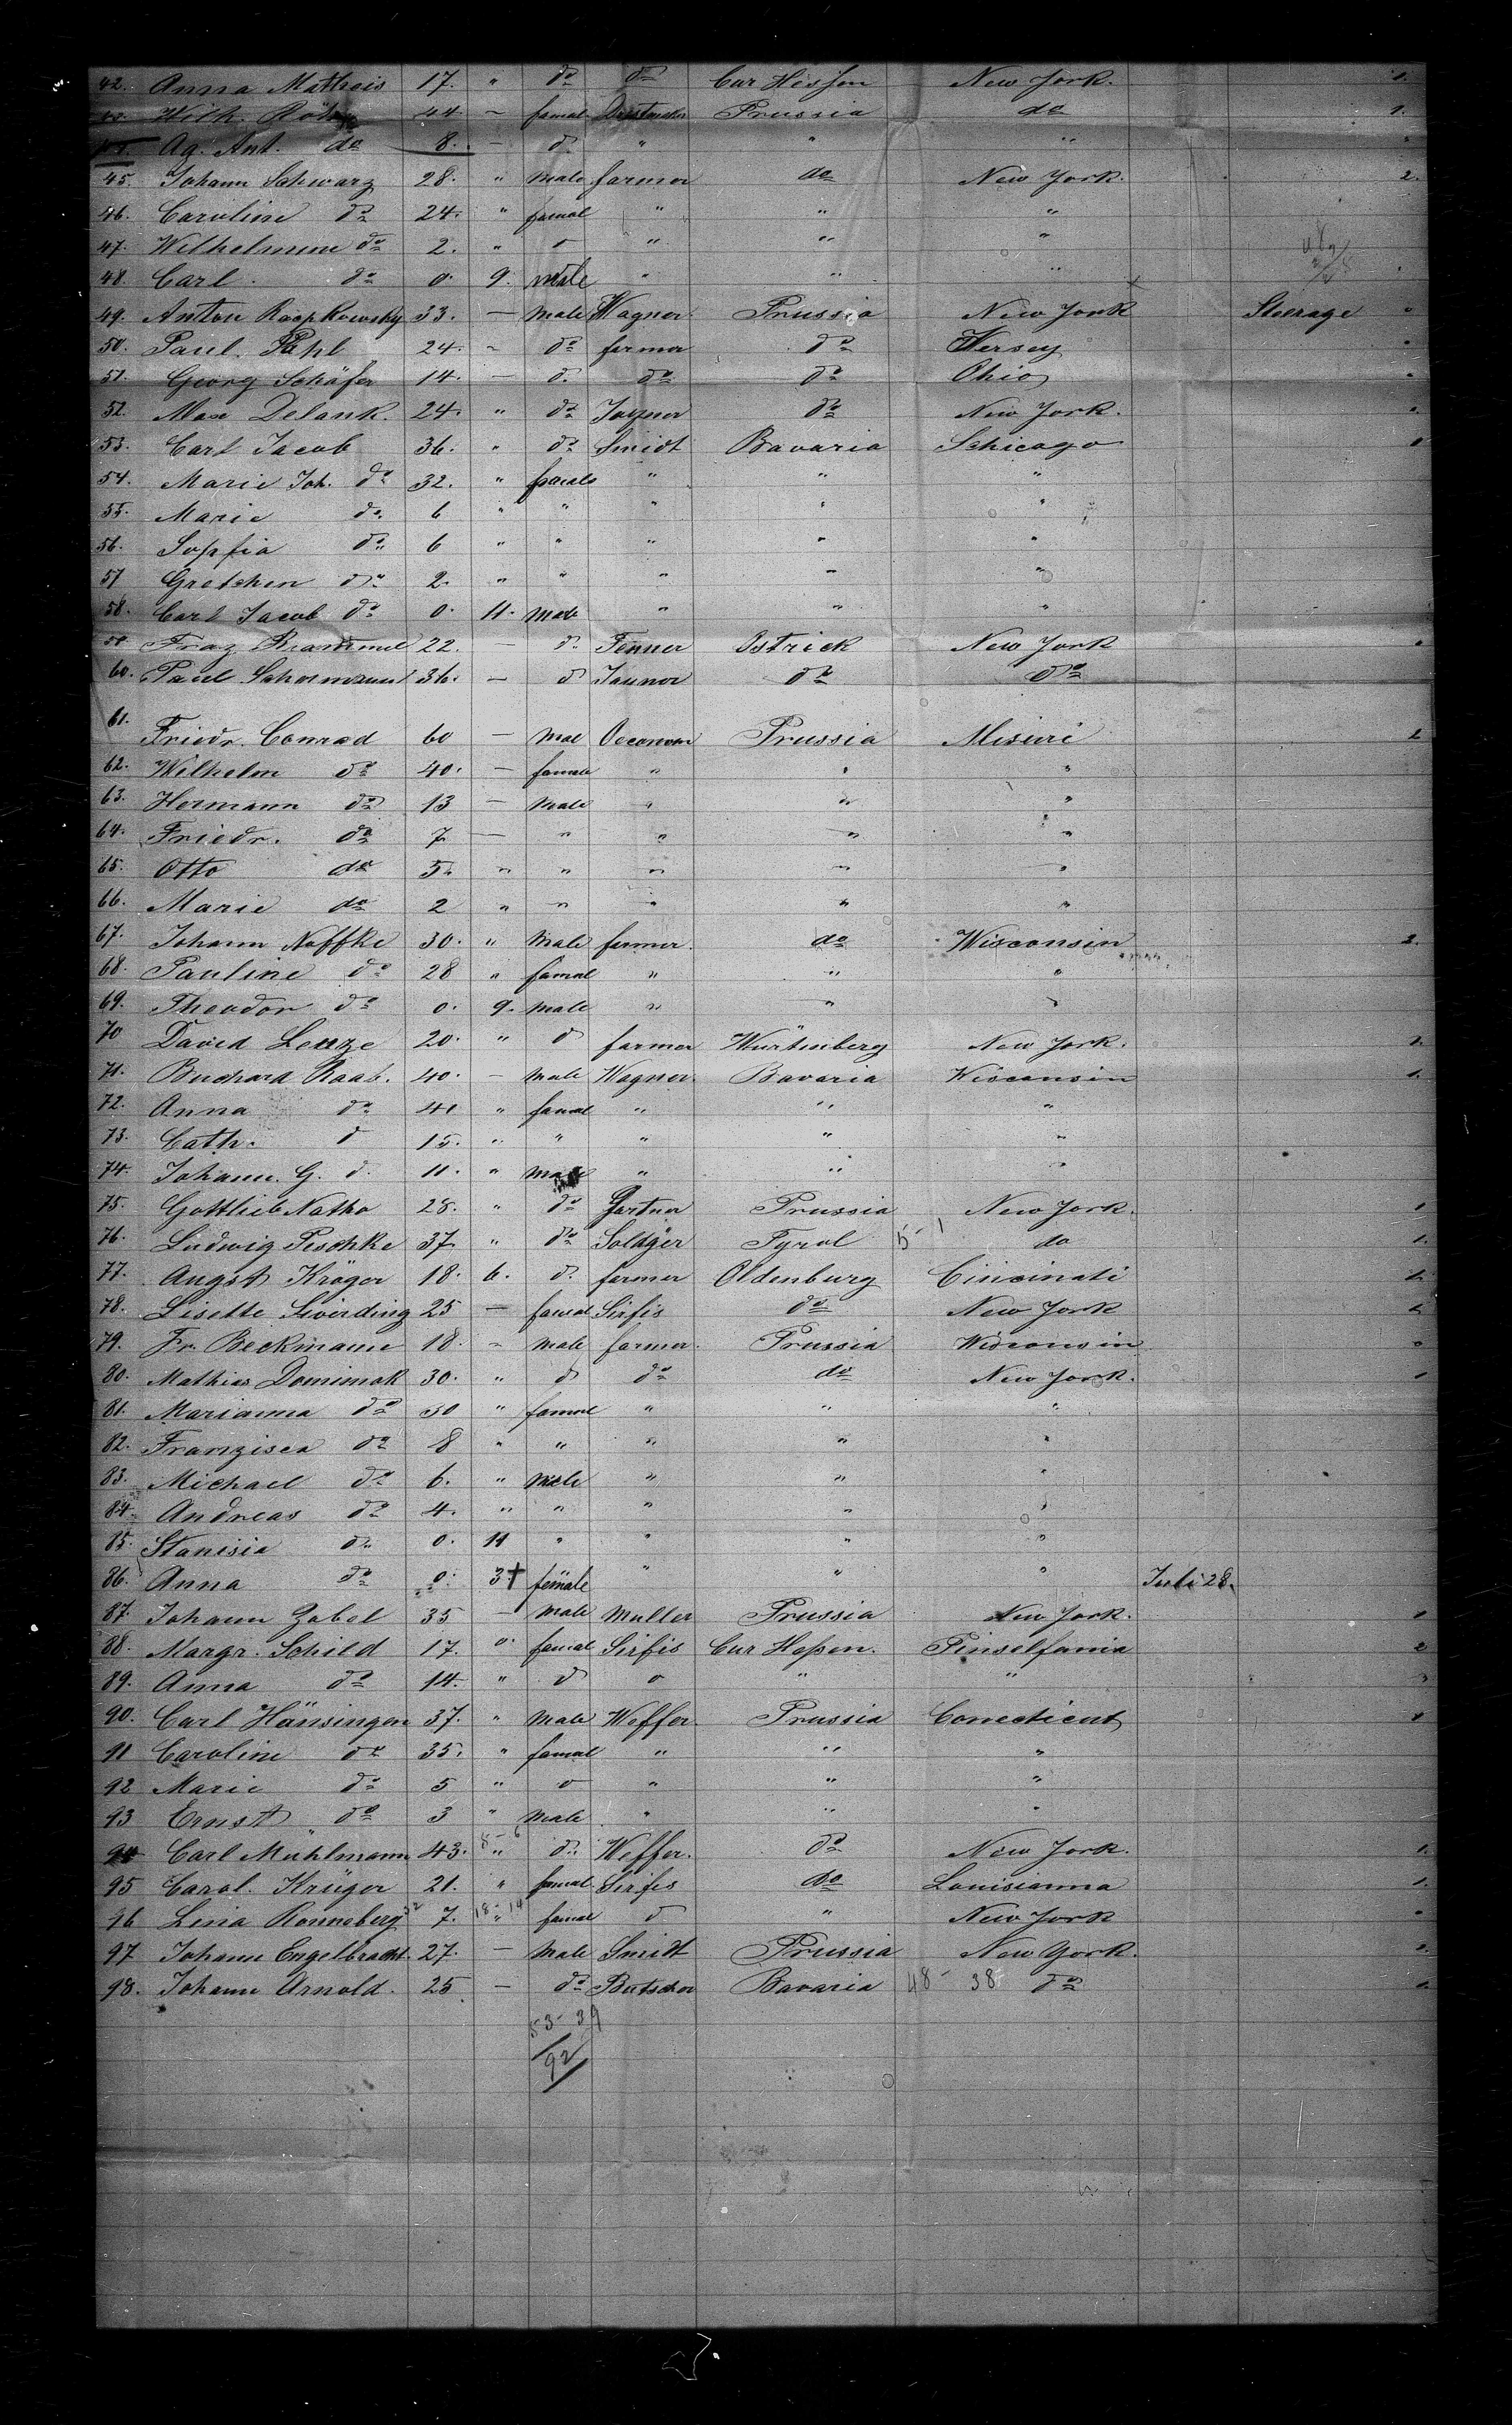 42. Anna Matheis 17. " do do Cur Hessen New York. 1.
Wilh. 44 – famal Prussia do 1.
Ag. Ant. do 8. – d. " " "
45. Johann Schwarz 28. " male farmer do New York. 2.
46. Caroline do 24. " famal " " "
47. Wilhelmine do 2. " " " "
48. Carl. do 0. 9. male " " "
49. Anton 33. — male Wagner Prussia New York Steerage
50. Paul Pahl 24. – do farmer do Yersey
51. Georg Schäfer 14. — d. do do Ohio
52. Max Delank. 24. " do do New York.
53. Carl Jacob 36. " do Smidt Bavaria Schicago
54. Marie Joh. do 32. " famale " " "
55. Marie do. 6 " " " " "
56. Sopfia do 6 " " " " "
57 Gretchen do 2. " " " " "
58. Carl Jacob do 0. 11. male " " "
59 Franz 22. — d. Ostrick New York
60. Paul 36. — d do do
61. Friedr. Conrad 60 — mal Oeconom Prussia Misuri 2
62. Wilhelm do 40. — famale " " "
63. Hermann do 13 — male " " "
64. Friedr. do 7 — " " " "
65. Otto do 5. " " " " "
66. Marie do 2 " " " " "
67. Johann Noffke 30. " male farmer. do Wisconsin 2.
68. Pauline do 28 " famal " " "
69. Theodor do 0. 9. male " " "
70 David Lenze 20. " d farmer Würtenberg New York. 1.
71. Buchard Raab. 40. – male Wagner. Bavaria Wisconsin 1.
72. Anna do 40 " famal " " "
73. Cath. d 15. " " " " "
74. Johann. G. d. 11. " male " " "
75. Gottlieb Natho 28. " do Gartner Prussia New York. 1
76. Ludwig Peschke 37 " do Soldger Tyrol 5 - 1 do 1.
77. Augst Kröger 18. 6. d. farmer Oldenburg Cincinati 1.
78. Lisette Siverding 25 — famal Sirfis do New York
79. Fr. Beckmann 18. – male farmer. Prussia Wisconsin
80. Mathias Dominiak 30. " d do do New York. 1
81. Marianna do 30 " famal " " "
82. Franzisca do 8 " " " " "
83. Michael do 6. " male " " "
84. Andreas do 4. " " " " "
85. Stanisia do 0. 11 " " " "
86. Anna do 0. 3 † female " " " Juli 28.
87. Johann Zabel 35 — male Muller Prussia New York. 1
88. Margr. Schild 17. " famal Sirfis Cur Hessen. Pinselfania 2
89. Anna do 14. " d " "
90. Carl Hänsingen 37. " male Weffer. Prussia Conecticut
91 Caroline do 35. " famal " " "
92 Marie do 5 " " " "
93 Ernst do 3 " male " " "
94 Carl Muhlmann 43. 8 - 6 " do Weffer. do New York. 1.
95 Carol. Krüger 21. " famal Sirfis do Louisianna 1.
96 Lina Ronneberg 32 7. 18 - 14 " famal d " New York
97 Johann Engelbracht. 27. — male Smidt Prussia New York.
98. Johann Arnold. 25 — do Butscher Bavaria 48 - 38 do
53 - 39
92